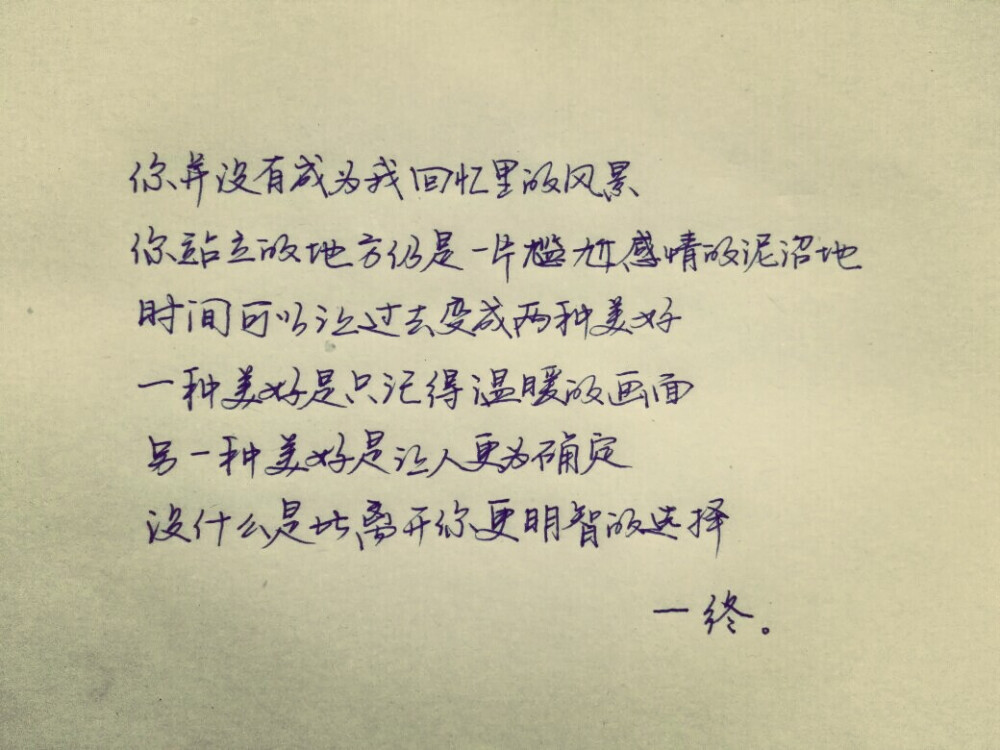 你并没有成为我回忆里的风景
你站立的地方仍是一片尴尬感情的泥沼地
时间可以让过去变成两种美好
一种美好是只记得温暖的画面
另一种美好是让人更为确定
没什么是比离开你更明智的选择
一终。